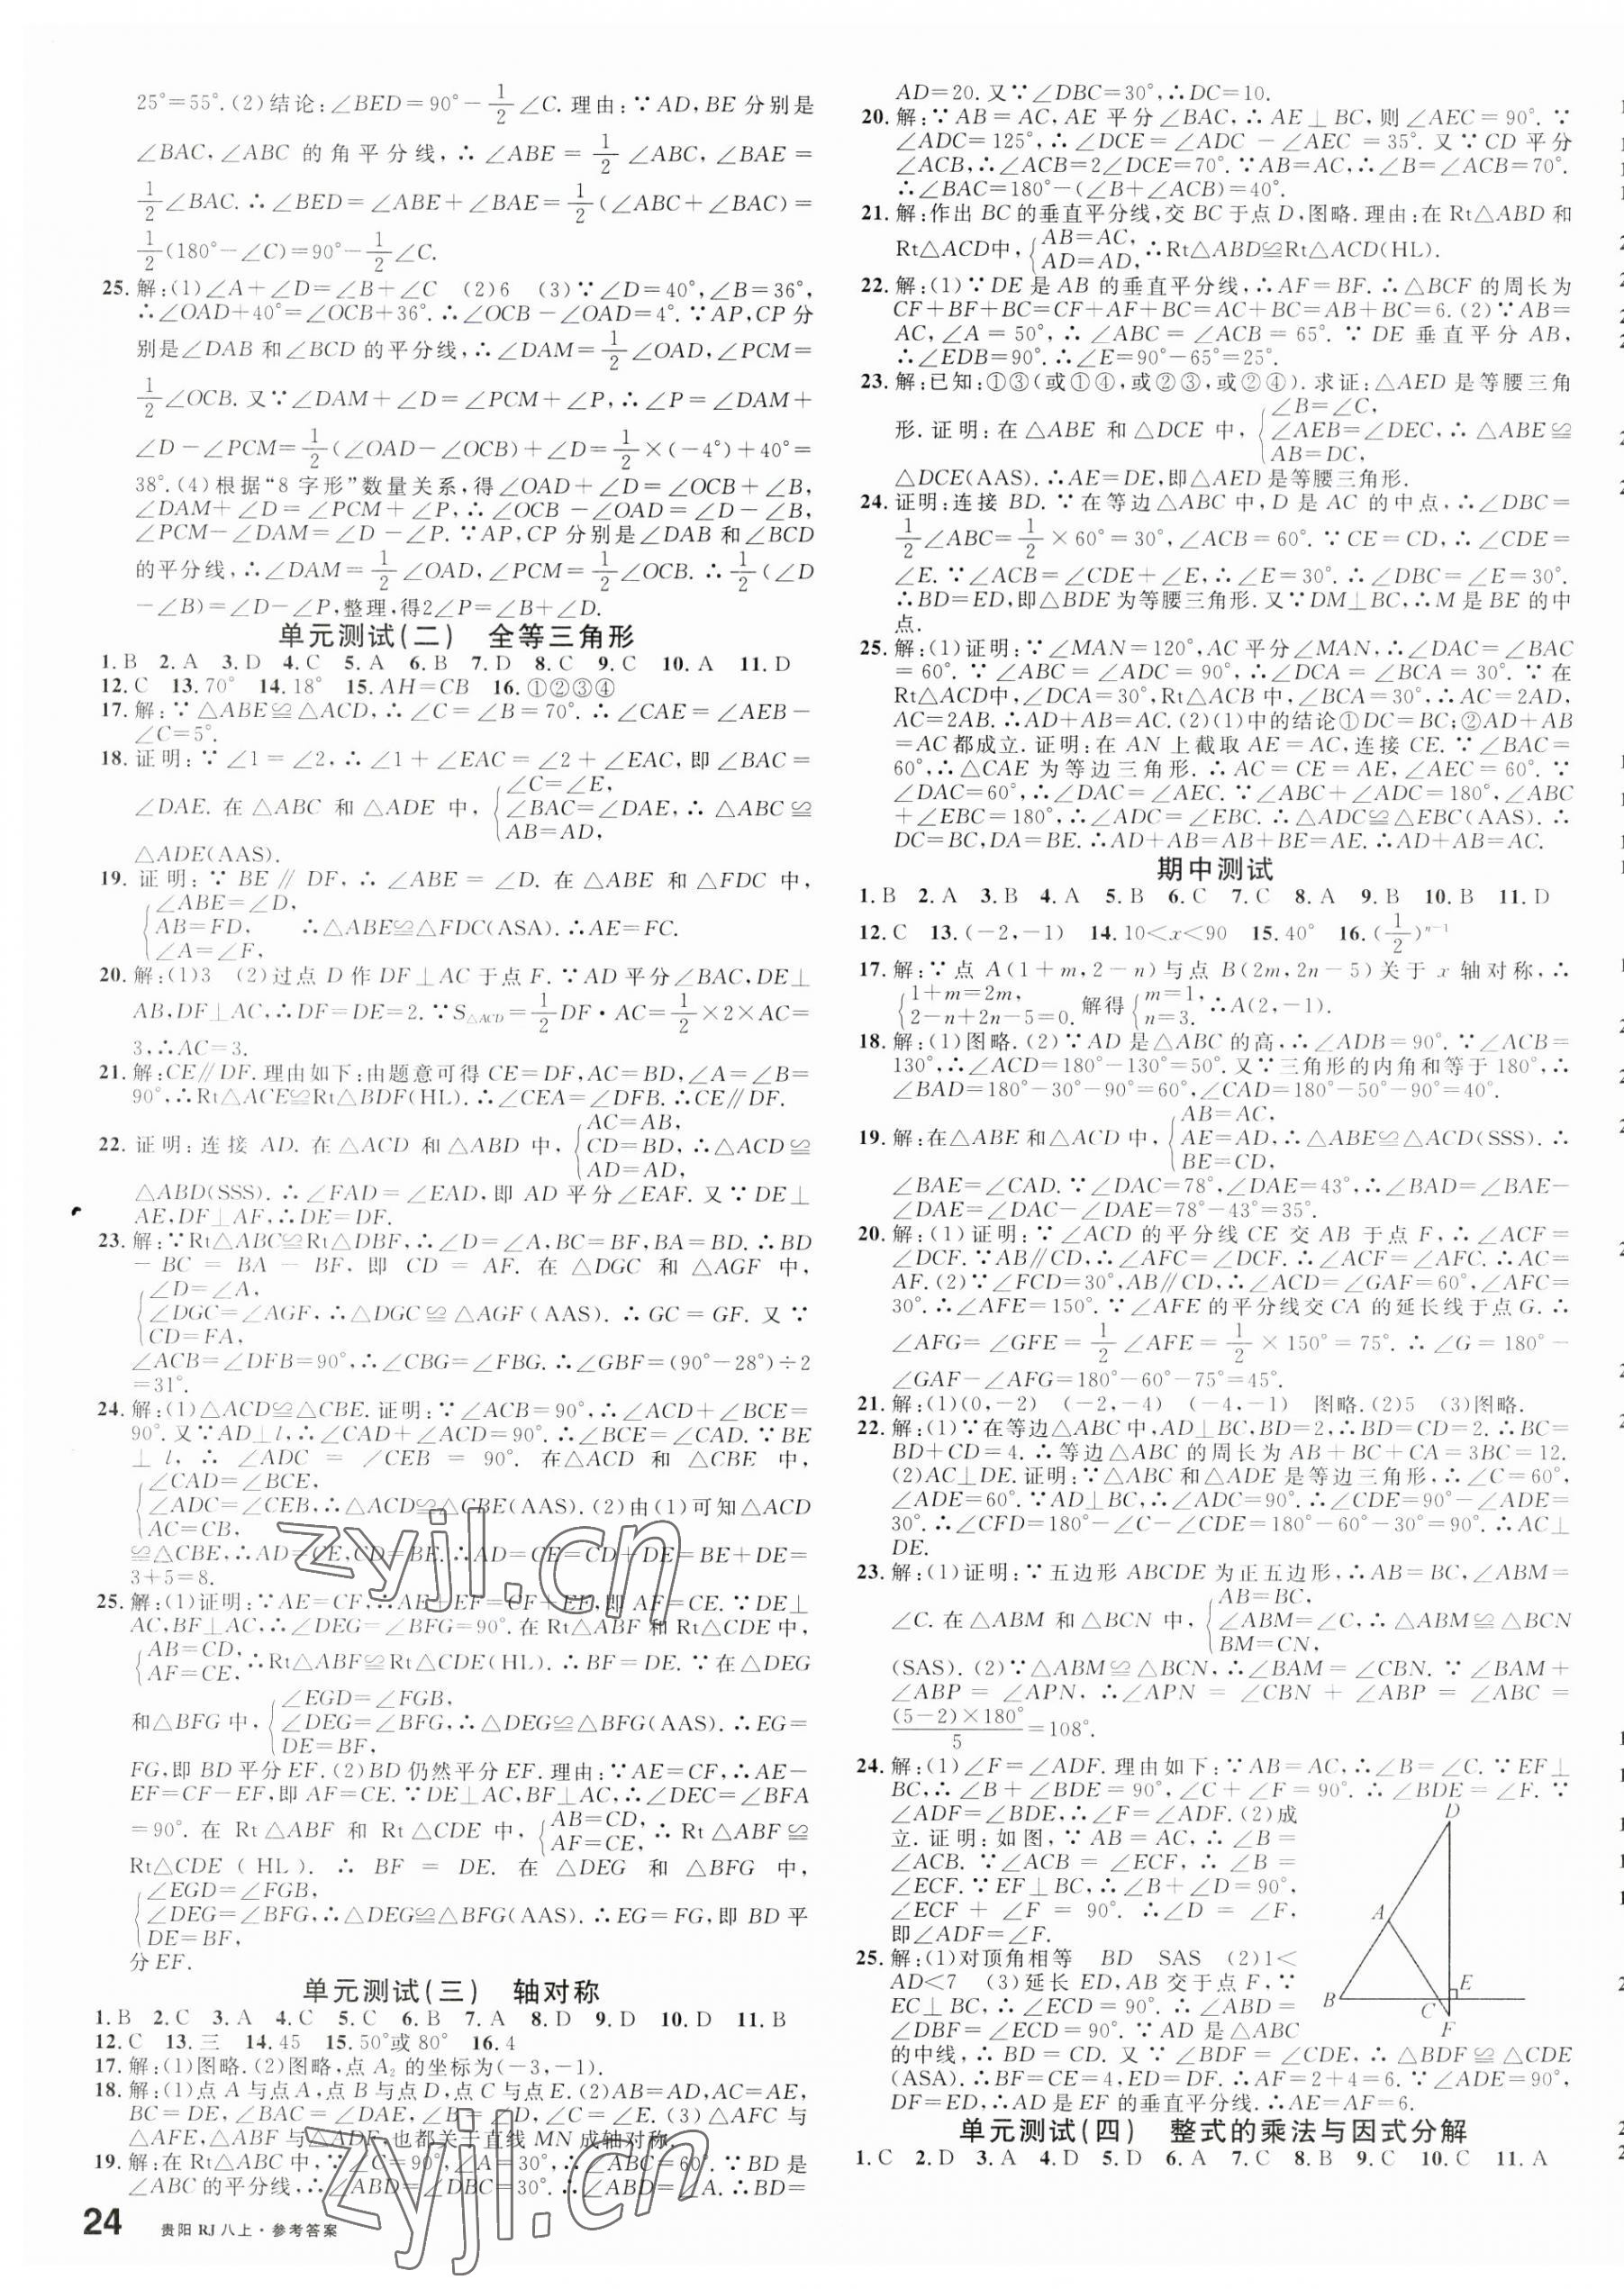 25°=55°.(2)结论:∠BED=90°-1/2∠C.理由:∵AD,BE分别是
∠BAC,∠ABC的角平分线,∴∠ABE=1/2∠ABC,∠BAE=
1/2∠BAC.∴∠BED=∠ABE+∠BAE=1/2(∠ABC+∠BAC)=
1/2(180°-∠C)=90°-1/2∠C.
25.解:(1)∠A+∠D=∠B+∠C (2)6 (3)∵∠D=40°,∠B=36°,
∴∠OAD+40°=∠OCB+36°.∴∠OCB-∠OAD=4°.∵AP,CP分
别是∠DAB和∠BCD的平分线,∴∠DAM=1/2∠OAD,∠PCM=
1/2∠OCB.又∵∠DAM+∠D=∠PCM+∠P,∴∠P=∠DAM+
∠D-∠PCM=1/2(∠OAD-∠OCB)+∠D=1/2×(-4°)+40°=
38°.(4)根据“8字形”数量关系,得∠OAD+∠D=∠OCB+∠B,
∠DAM+∠D=∠PCM+∠P,∴∠OCB-∠OAD=∠D-∠B,
∠PCM-∠DAM=∠D-∠P.∵AP,CP分别是∠DAB和∠BCD
的平分线,∴∠DAM=1/2∠OAD,∠PCM=1/2∠OCB.∴1/2(∠D
-∠B)=∠D-∠P,整理,得2∠P=∠B+∠D.
单元测试(二) 全等三角形
1.B 2.A 3.D 4.C 5.A 6.B 7.D 8.C 9.C 10.A 11.D
12.C 13.70° 14.18° 15.AH=CB 16.①②③④
17.解:∵△ABE≌△ACD,∴∠C=∠B=70°.∴∠CAE=∠AEB-
∠C=5°.
18.证明:∵∠1=∠2,∴∠1+∠EAC=∠2+∠EAC,即∠BAC=
∠DAE.在△ABC和△ADE中,{∠C=∠E,
∠BAC=∠DAE,∴△ABC≌
AB=AD,
△ADE(AAS).
19.证明:∵BE∥DF,∴∠ABE=∠D.在△ABE和△FDC中,
{∠ABE=∠D,
AB=FD, ∴△ABE≌△FDC(ASA).∴AE=FC.
∠A=∠F,
20.解:(1)3 (2)过点D作DF⊥AC于点F.∵AD平分∠BAC,DE⊥
AB,DF⊥AC,∴DF=DE=2.∵S△ACD=1/2DF·AC=1/2×2×AC=
3,∴AC=3.
21.解:CE∥DF.理由如下:由题意可得CE=DF,AC=BD,∠A=∠B=
90°,∴Rt△ACE≌Rt△BDF(HL).∴∠CEA=∠DFB.∴CE∥DF.
22.证明:连接AD.在△ACD和△ABD中,{AC=AB,
CD=BD,∴△ACD≌
AD=AD,
△ABD(SSS).∴∠FAD=∠EAD,即AD平分∠EAF.又∵DE⊥
AE,DF⊥AF,∴DE=DF.
23.解:∵Rt△ABC≌Rt△DBF,∴∠D=∠A,BC=BF,BA=BD.∴BD
-BC=BA-BF,即CD=AF.在△DGC和△AGF中,
{∠D=∠A,
∠DGC=∠AGF,∴△DGC≌△AGF(AAS).∴GC=GF.又∵
CD=FA,
∠ACB=∠DFB=90°,∴∠CBG=∠FBG.∴∠GBF=(90°-28°)÷2
=31°.
24.解:(1)△ACD≌△CBE.证明:∵∠ACB=90°,∴∠ACD+∠BCE=
90°.又∵AD⊥l,∴∠CAD+∠ACD=90°.∴∠BCE=∠CAD.∵BE
⊥l,∴∠ADC=∠CEB=90°.在△ACD和△CBE中,
{∠CAD=∠BCE,
∠ADC=∠CEB,∴△ACD≌△CBE(AAS).(2)由(1)可知△ACD
AC=CB,
≌△CBE,∴AD=CE,CD=BE.∴AD=CE=CD+DE=BE+DE=
3+5=8.
25.解:(1)证明:∵AE=CF,∴AE+EF=CF+EF,即AF=CE.∵DE⊥
AC,BF⊥AC,∴∠DEG=∠BFG=90°.在Rt△ABF和Rt△CDE中,
{AB=CD,
AF=CE,∴Rt△ABF≌Rt△CDE(HL).∴BF=DE.∵在△DEG
和△BFG中,{∠EGD=∠FGB,
∠DEG=∠BFG,∴△DEG≌△BFG(AAS).∴EG=
DE=BF,
FG,即BD平分EF.(2)BD仍然平分EF.理由:∵AE=CF,∴AE-
EF=CF-EF,即AF=CE.∵DE⊥AC,BF⊥AC,∴∠DEC=∠BFA
=90°.在Rt△ABF和Rt△CDE中,{AB=CD,
AF=CE,∴Rt△ABF≌
Rt△CDE(HL).∴BF=DE.在△DEG和△BFG中,
{∠EGD=∠FGB,
∠DEG=∠BFG,∴△DEG≌△BFG(AAS).∴EG=FG,即BD平
DE=BF,
分EF.
单元测试(三) 轴对称
1.B 2.C 3.A 4.C 5.C 6.B 7.A 8.D 9.D 10.D 11.B
12.C 13.三 14.45 15.50°或80° 16.4
17.解:(1)图略.(2)图略,点A₂的坐标为(-3,-1).
18.解:(1)点A与点A,点B与点D,点C与点E.(2)AB=AD,AC=AE,
BC=DE,∠BAC=∠DAE,∠B=∠D,∠C=∠E.(3)△AFC与
△AFE,△ABF与△ADF,也都关于直线MN成轴对称.
19.解:在Rt△ABC中,∵∠C=90°,∠A=30°,∴∠ABC=60°.∵BD是
∠ABC的平分线,∴∠ABD=∠DBC=30°.∴∠ABD=∠A.∴BD=
24 贵阳RJ八上·参考答案
AD=20.又∵∠DBC=30°,∴DC=10.
20.解:∵AB=AC,AE平分∠BAC,∴AE⊥BC,则∠AEC=90°.∵
∠ADC=125°,∴∠DCE=∠ADC-∠AEC=35°.又∵CD平分
∠ACB,∴∠ACB=2∠DCE=70°.∵AB=AC,∴∠B=∠ACB=70°.
∴∠BAC=180°-(∠B+∠ACB)=40°.
21.解:作出BC的垂直平分线,交BC于点D,图略.理由:在Rt△ABD和
Rt△ACD中,{AB=AC,
AD=AD,∴Rt△ABD≌Rt△ACD(HL).
22.解:(1)∵DE是AB的垂直平分线,∴AF=BF.∴△BCF的周长为
CF+BF+BC=CF+AF+BC=AC+BC=AB+BC=6.(2)∵AB=
AC,∠A=50°,∴∠ABC=∠ACB=65°.∵DE垂直平分AB,
∴∠EDB=90°.∴∠E=90°-65°=25°.
23.解:已知:①③(或①④,或②③,或②④).求证:△AED是等腰三角
形.证明:在△ABE和△DCE中,{∠B=∠C,
∠AEB=∠DEC,∴△ABE≌
AB=DC,
△DCE(AAS).∴AE=DE,即△AED是等腰三角形.
24.证明:连接BD.∵在等边△ABC中,D是AC的中点,∴∠DBC=
1/2∠ABC=1/2×60°=30°,∠ACB=60°.∵CE=CD,∴∠CDE=
∠E.∵∠ACB=∠CDE+∠E,∴∠E=30°.∴∠DBC=∠E=30°.
∴BD=ED,即△BDE为等腰三角形.又∵DM⊥BC,∴M是BE的中
点.
25.解:(1)证明:∵∠MAN=120°,AC平分∠MAN,∴∠DAC=∠BAC
=60°.∵∠ABC=∠ADC=90°,∴∠DCA=∠BCA=30°.∵在
Rt△ACD中,∠DCA=30°,Rt△ACB中,∠BCA=30°,∴AC=2AD,
AC=2AB.∴AD+AB=AC.(2)(1)中的结论①DC=BC;②AD+AB
=AC都成立.证明:在AN上截取AE=AC,连接CE.∵∠BAC=
60°,∴△CAE为等边三角形.∴AC=CE=AE,∠AEC=60°.∵
∠DAC=60°,∴∠DAC=∠AEC.∵∠ABC+∠ADC=180°,∠ABC
+∠EBC=180°,∴∠ADC=∠EBC.∴△ADC≌△EBC(AAS).∴
DC=BC,DA=BE.∴AD+AB=AB+BE=AE.∴AD+AB=AC.
期中测试
1.B 2.A 3.B 4.A 5.B 6.C 7.C 8.A 9.B 10.B 11.D
12.C 13.(-2,-1) 14.10<x<90 15.40° 16.(1/2)ⁿ⁻¹
17.解:∵点A(1+m,2-n)与点B(2m,2n-5)关于x轴对称,∴
{1+m=2m,
2-n+2n-5=0. 解得{m=1,
n=3. ∴A(2,-1).
18.解:(1)图略.(2)∵AD是△ABC的高,∴∠ADB=90°.∵∠ACB=
130°,∴∠ACD=180°-130°=50°.又∵三角形的内角和等于180°,∴
∠BAD=180°-30°-90°=60°,∠CAD=180°-50°-90°=40°.
19.解:在△ABE和△ACD中,{AB=AC,
AE=AD,∴△ABE≌△ACD(SSS).∴
BE=CD,
∠BAE=∠CAD.∵∠DAC=78°,∠DAE=43°,∴∠BAD=∠BAE-
∠DAE=∠DAC-∠DAE=78°-43°=35°.
20.解:(1)证明:∵∠ACD的平分线CE交AB于点F,∴∠ACF=
∠DCF.∵AB∥CD,∴∠AFC=∠DCF.∴∠ACF=∠AFC.∴AC=
AF.(2)∵∠FCD=30°,AB∥CD,∴∠ACD=∠GAF=60°,∠AFC=
30°.∴∠AFE=150°.∵∠AFE的平分线交CA的延长线于点G.∴
∠AFG=∠GFE=1/2∠AFE=1/2×150°=75°.∴∠G=180°-
∠GAF-∠AFG=180°-60°-75°=45°.
21.解:(1)(0,-2) (-2,-4) (-4,-1) 图略.(2)5 (3)图略.
22.解:(1)∵在等边△ABC中,AD⊥BC,BD=2,∴BD=CD=2.∴BC=
BD+CD=4.∴等边△ABC的周长为AB+BC+CA=3BC=12.
(2)AC⊥DE.证明:∵△ABC和△ADE是等边三角形,∴∠C=60°,
∠ADE=60°.∵AD⊥BC,∴∠ADC=90°.∴∠CDE=90°-∠ADE=
30°.∴∠CFD=180°-∠C-∠CDE=180°-60°-30°=90°.∴AC⊥
DE.
23.解:(1)证明:∵五边形ABCDE为正五边形,∴AB=BC,∠ABM=
∠C.在△ABM和△BCN中,{AB=BC,
∠ABM=∠C,∴△ABM≌△BCN
BM=CN,
(SAS).(2)∵△ABM≌△BCN,∴∠BAM=∠CBN.∵∠BAM+
∠ABP=∠APN,∴∠APN=∠CBN+∠ABP=∠ABC=
(5-2)×180°/5=108°.
24.解:(1)∠F=∠ADF.理由如下:∵AB=AC,∴∠B=∠C.∵EF⊥
BC,∴∠B+∠BDE=90°,∠C+∠F=90°.∴∠BDE=∠F.∵
∠ADF=∠BDE,∴∠F=∠ADF.(2)成
立.证明:如图,∵AB=AC,∴∠B=
∠ACB.∵∠ACB=∠ECF,∴∠B=
∠ECF.∵EF⊥BC,∴∠B+∠D=90°,
∠ECF+∠F=90°.∴∠D=∠F,
即∠ADF=∠F.
D
A
B
C
E
F
25.解:(1)对顶角相等 BD SAS (2)1<
AD<7 (3)延长ED,AB交于点F,∵
EC⊥BC,∴∠ECD=90°.∴∠ABD=
∠DBF=∠ECD=90°.∵AD是△ABC
的中线,∴BD=CD.又∵∠BDF=∠CDE,∴△BDF≌△CDE
(ASA).∴BF=CE=4,ED=DF.∴AF=2+4=6.∵∠ADE=90°,
DF=ED,∴AD是EF的垂直平分线.∴AE=AF=6.
单元测试(四) 整式的乘法与因式分解
1.C 2.D 3.A 4.D 5.D 6.A 7.C 8.B 9.C 10.C 11.A
zyjl.cn
zyjl.cn